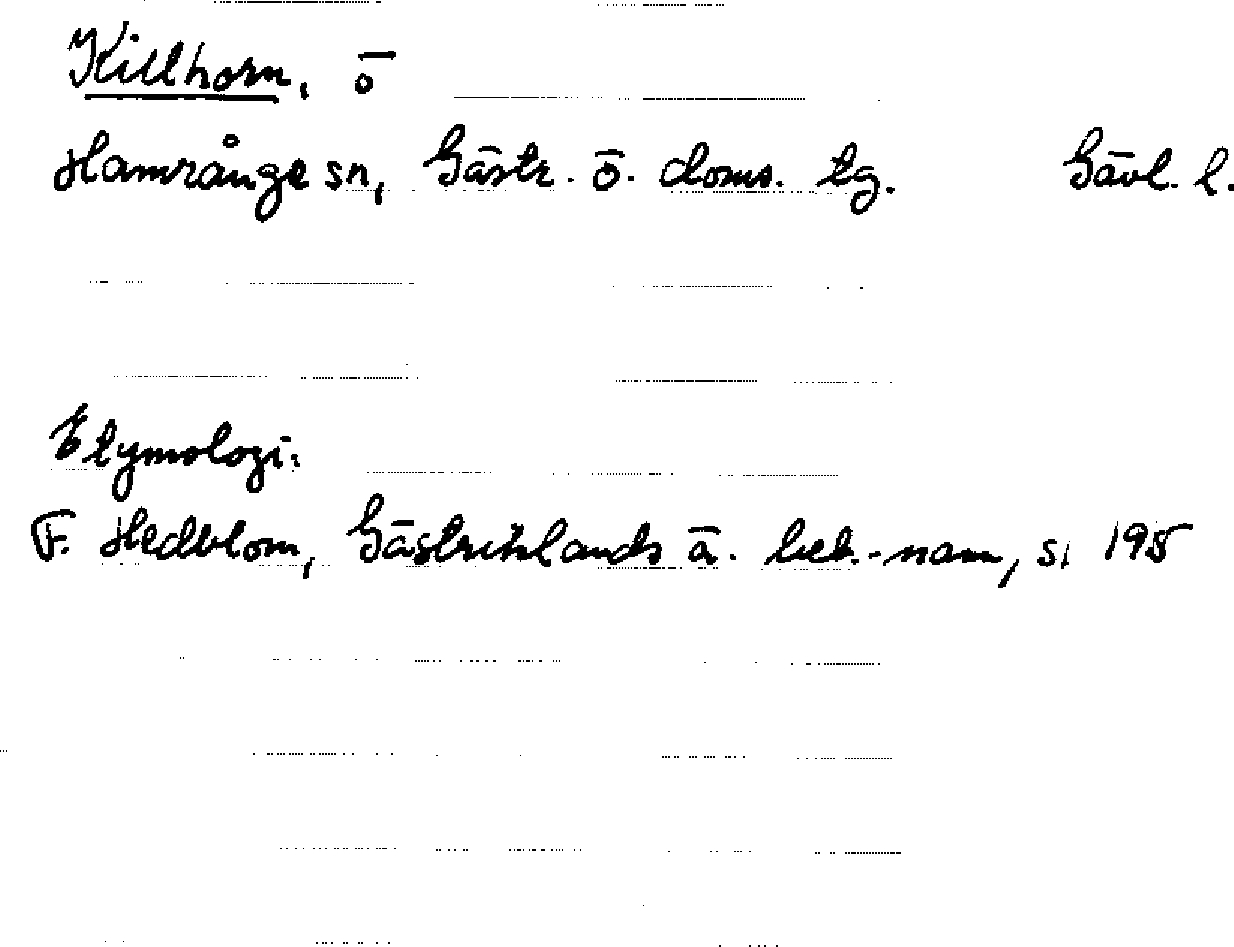 Killhorn, ö
Hamrånge sn, Gästr. ö. doms. tg. Gävl. l.
Etymologi.
F. Hedblom, Gästriklands ä. beb.-namn, s. 195